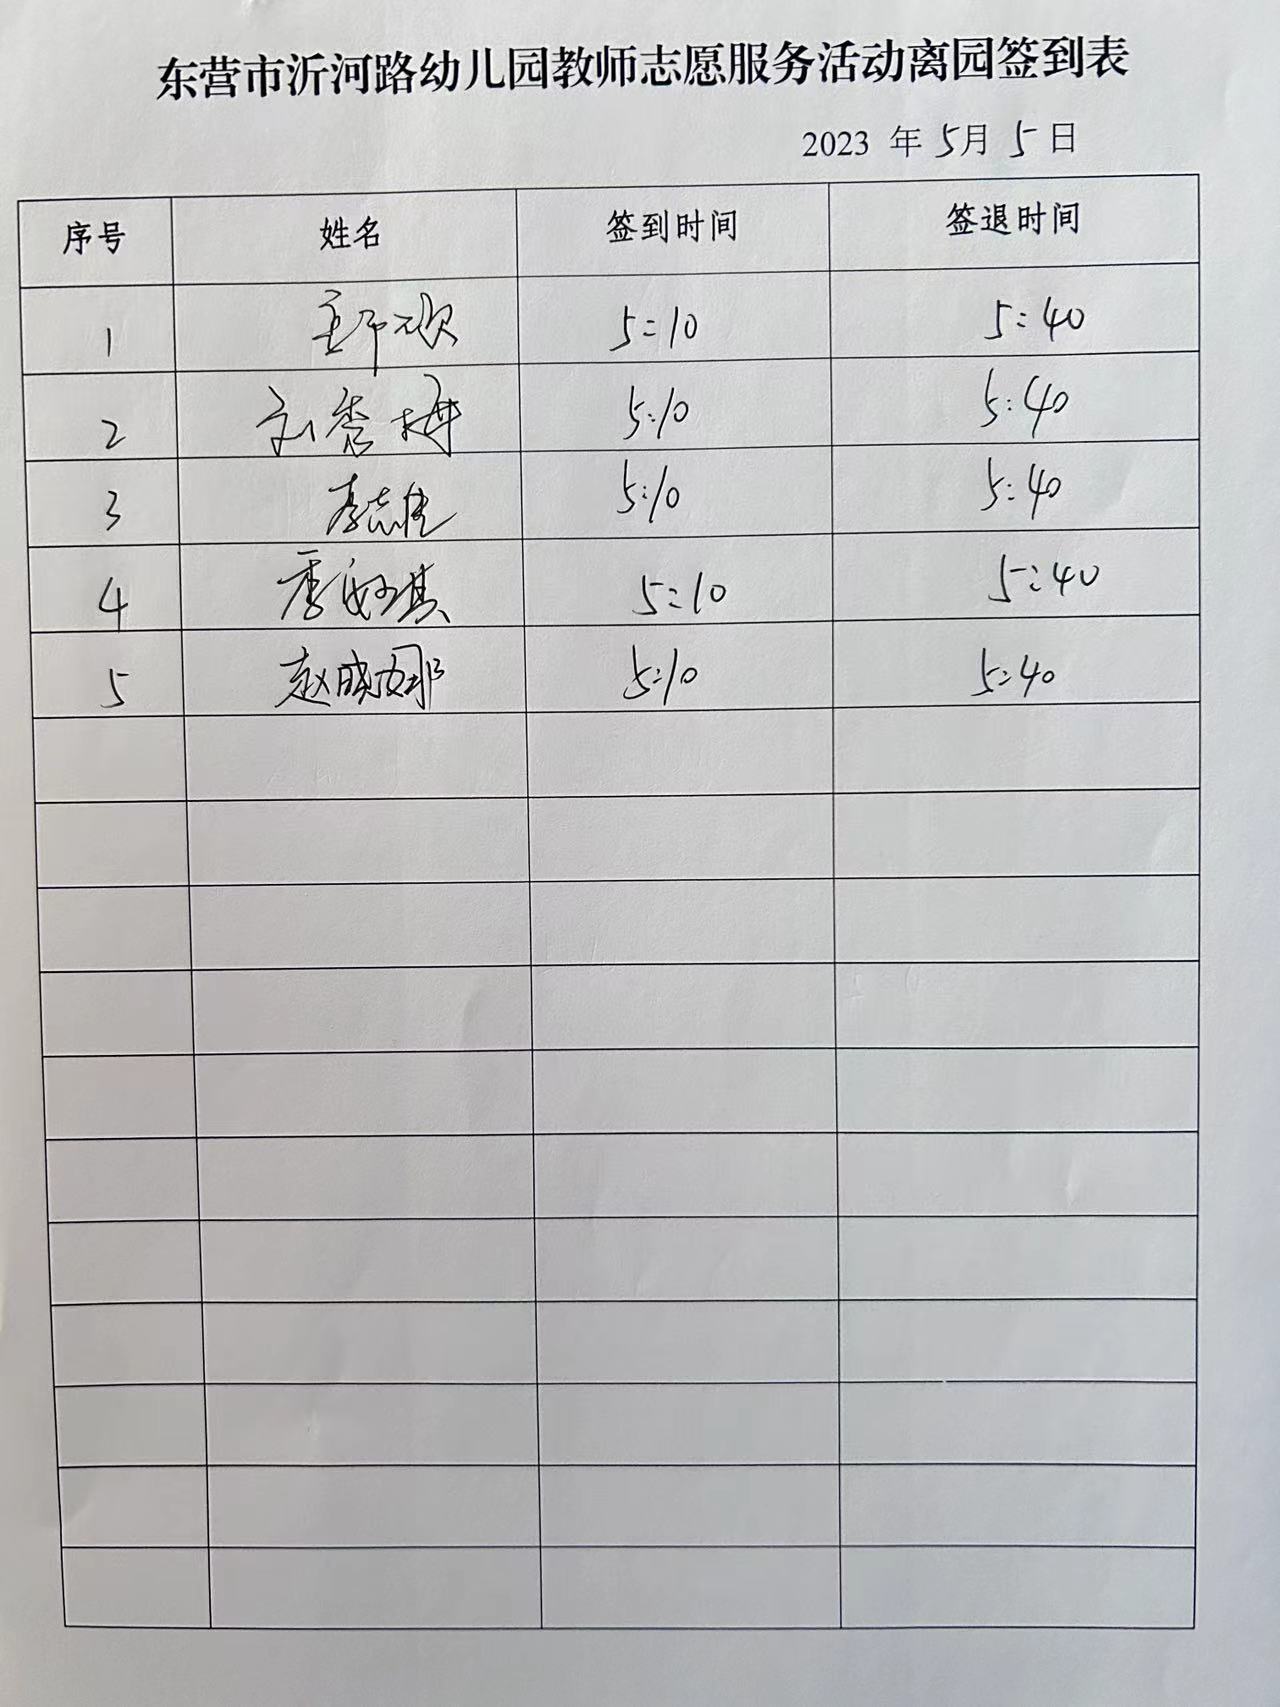 东营市沂河路幼儿园教师志愿服务活动离园签到表
2023 年 5月 5 日
序号 姓名 签到时间 签退时间
1 5:10 5:40
2 刘秀梅 5:10 5:40
3 李志 5:10 5:40
4 季 琪 5:10 5:40
5 赵晓娜 5:10 5:40